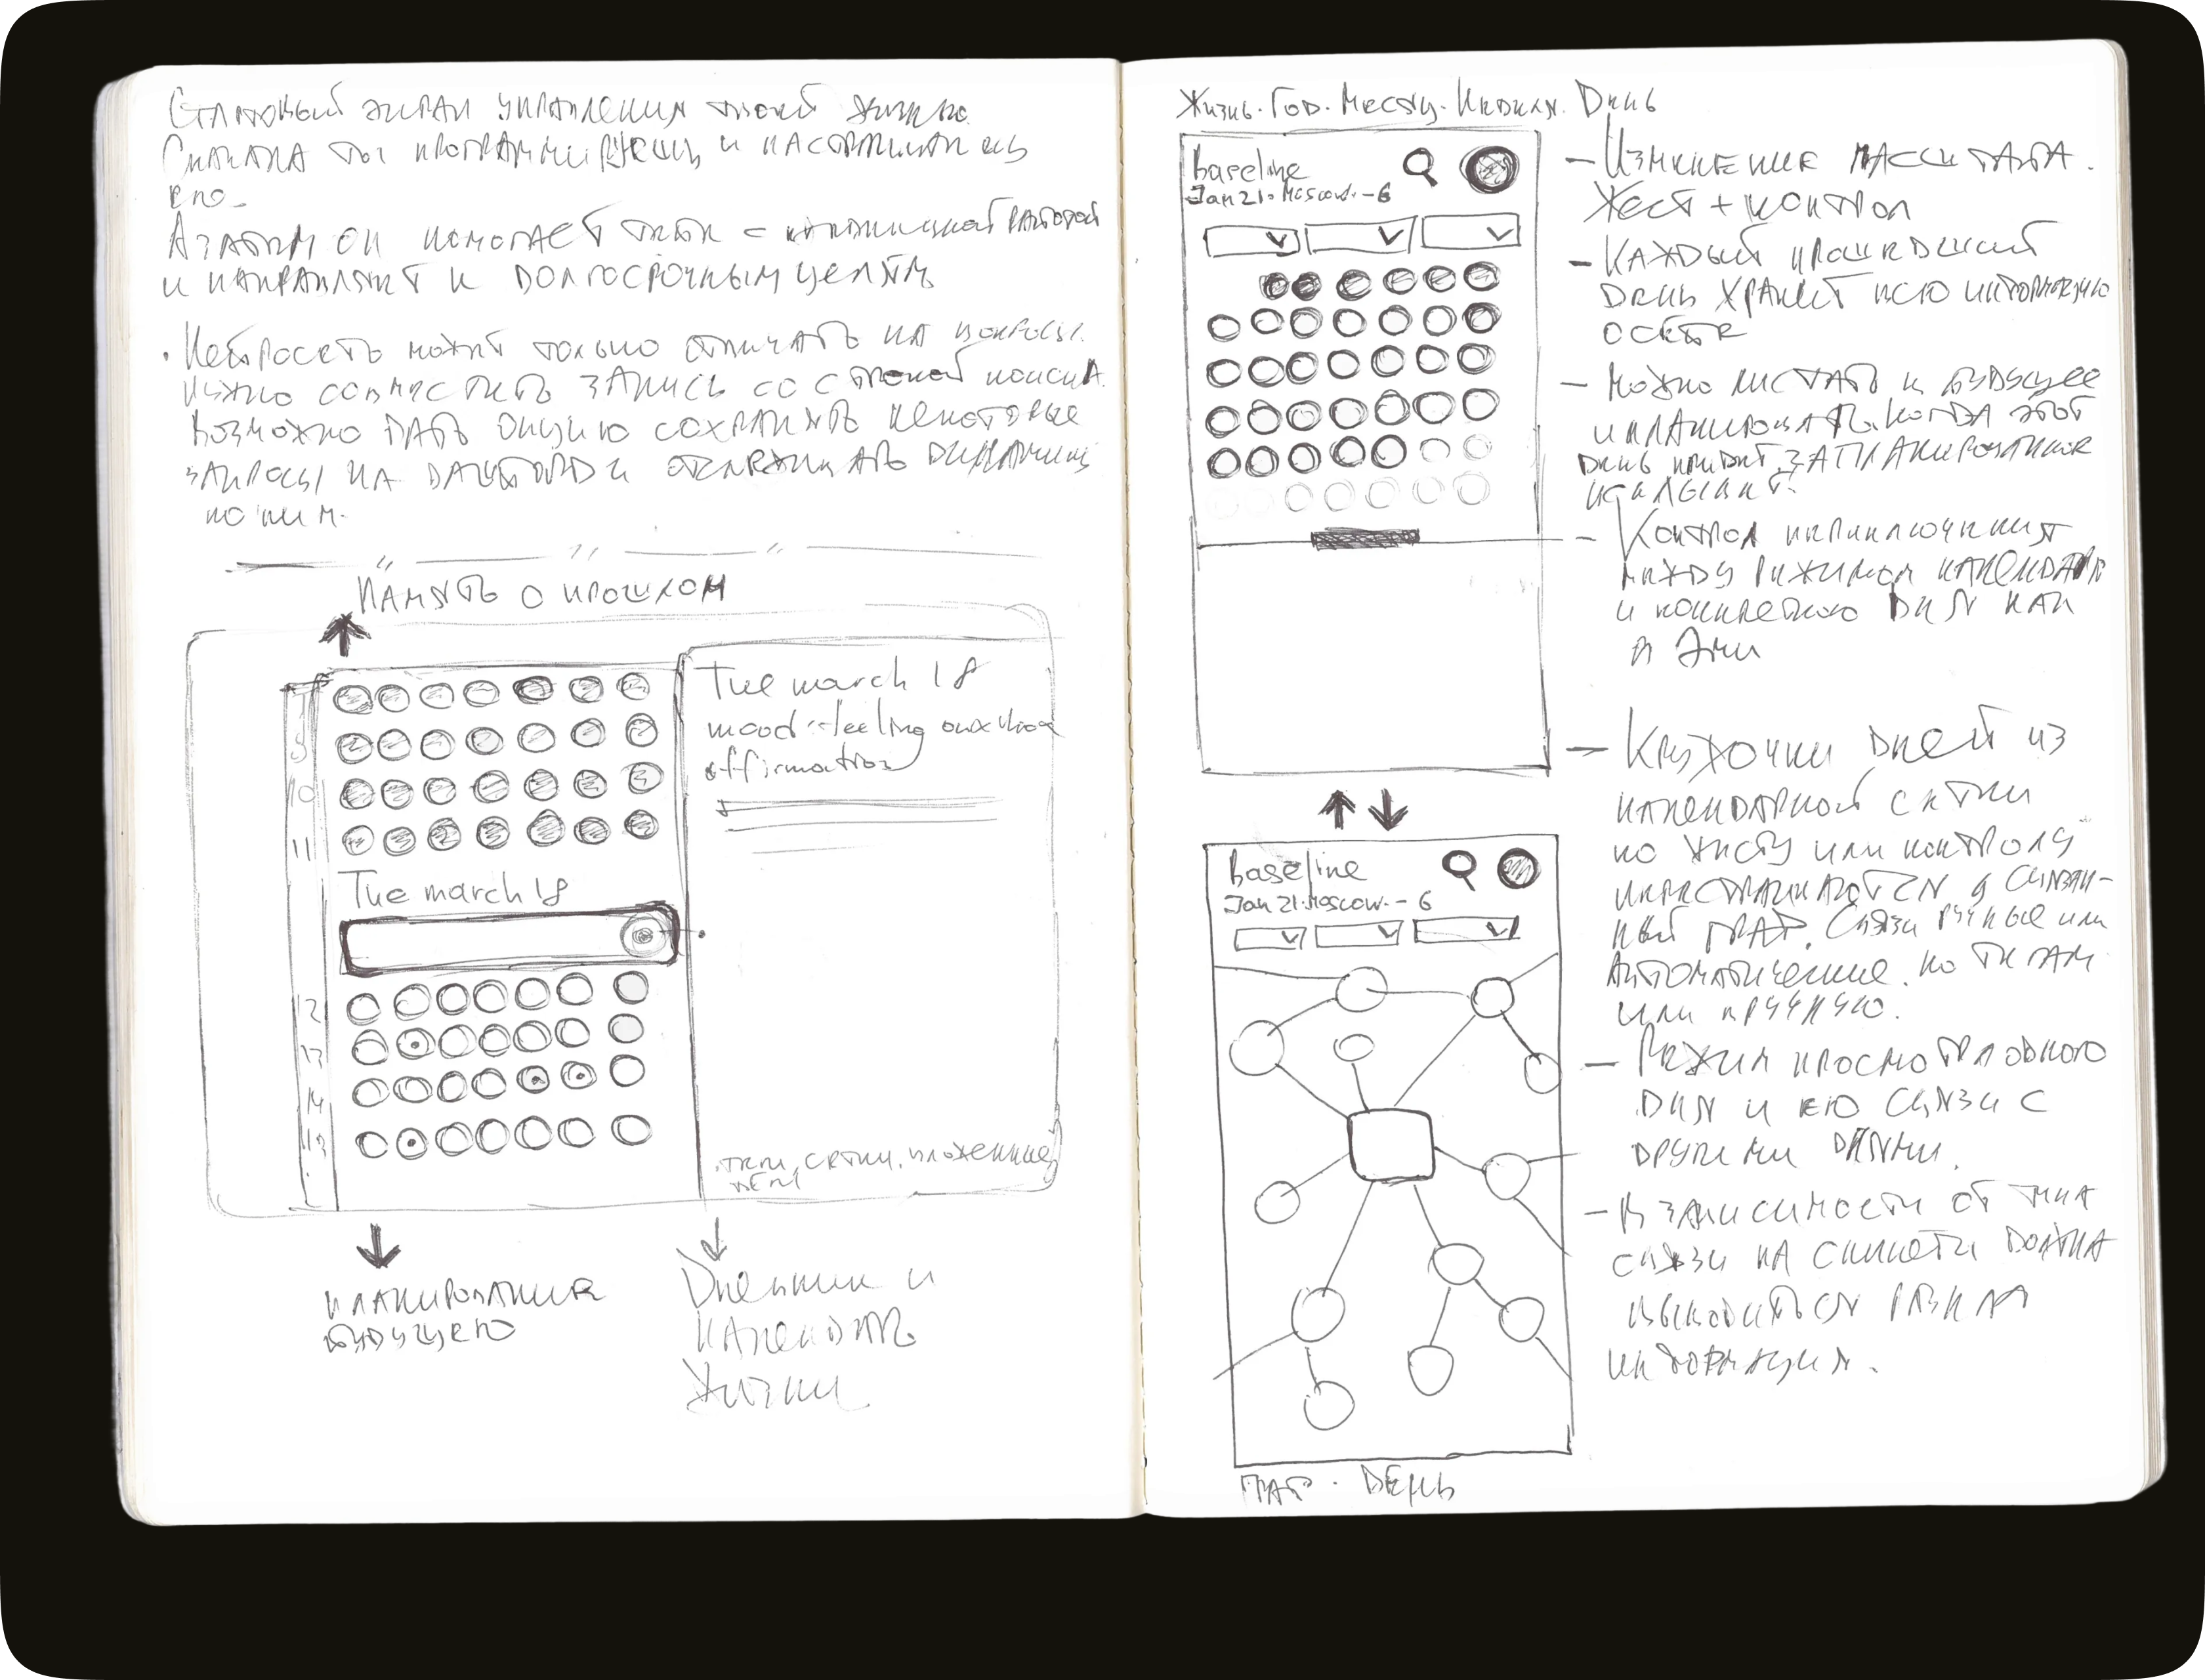 Стартовый экран управления твоей жизнью.
Сначала ты программируешь и настраиваешь
его.
А затем он помогает тебе с ежедневной работой
и направляет к долгосрочным целям
· Нейросеть может только отвечать на вопросы.
Нужно совместить запись со строкой поиска.
Возможно дать опцию сохранять некоторые
запросы на дашборд и отслеживать динамику
по ним.
Память о прошлом
Tue march 18
mood feeling
affirmation
9
10
11
Tue march 18
12
13
14
15
теги, сетки, вложенные
Планирование
будущего
Дневник и
календарь
жизни
Жизнь. Год. Месяц. Неделя. День
baseline
Jan 21. Moscow. -6
– Изменение масштаба.
Жест + контрол
– Каждый прошедший
день хранит всю информацию
о себе
– Можно листать в будущее
и планировать, когда этот
день придёт, запланированное
всплывёт.
– Контрол переключения
между режимом календаря
и конкретного дня как
в Эми
– Кружочки дней из
календарной сетки
по жесту или контролу
перестраиваются в связан-
ный граф. Связи ручные или
автоматические. по тегам
или вручную.
baseline
Jan 21. Moscow. -6
– Режим просмотра одного
дня и его связи с
другими днями.
– В зависимости от типа
связи на
выводиться разная
информация.
Граф. День